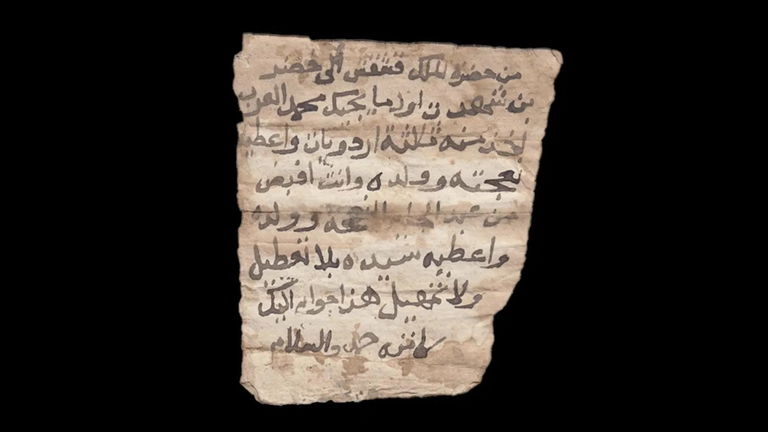 من حضره الملك قشقش الى خضر
بن شهد ن اول ما يجيك محمد العرب
تاخذ منه ثلاثة اردويات واعطيه
نعجته وولده وانت اقبض
من عبد الجابر النعجه وولده
واعطيه سيده بلا تعطيل
ولا تمهيل هذا جوابي اليك
حمد والسلام